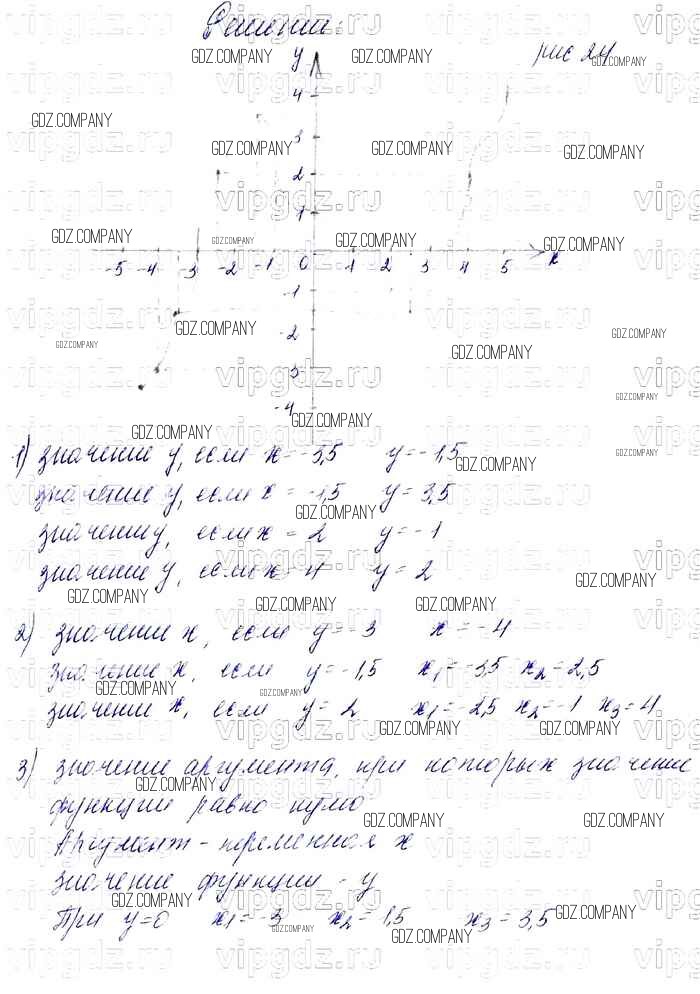 Решение:
рис 24
y
4
3
2
1
-5 -4 -3 -2 -1 0 1 2 3 4 5 x
-1
-2
-3
-4
1) значение y, если x = -3,5 y = -1,5
значение y, если x = -1,5 y = 3,5
значение y, если x = 2 y = -1
значение y, если x = 4 y = 2
2) значение x, если y = -3 x = -4
значение x, если y = -1,5 x₁ = -3,5 x₂ = 2,5
значение x, если y = 2 x₁ = -2,5 x₂ = -1 x₃ = 4
3) значение аргумента, при которых значение
функции равно нулю
Аргумент - переменная x
значение функции - y
При y=0 x₁ = -3 x₂ = 1,5 x₃ = 3,5
GDZ.COMPANY
vipgdz.ru